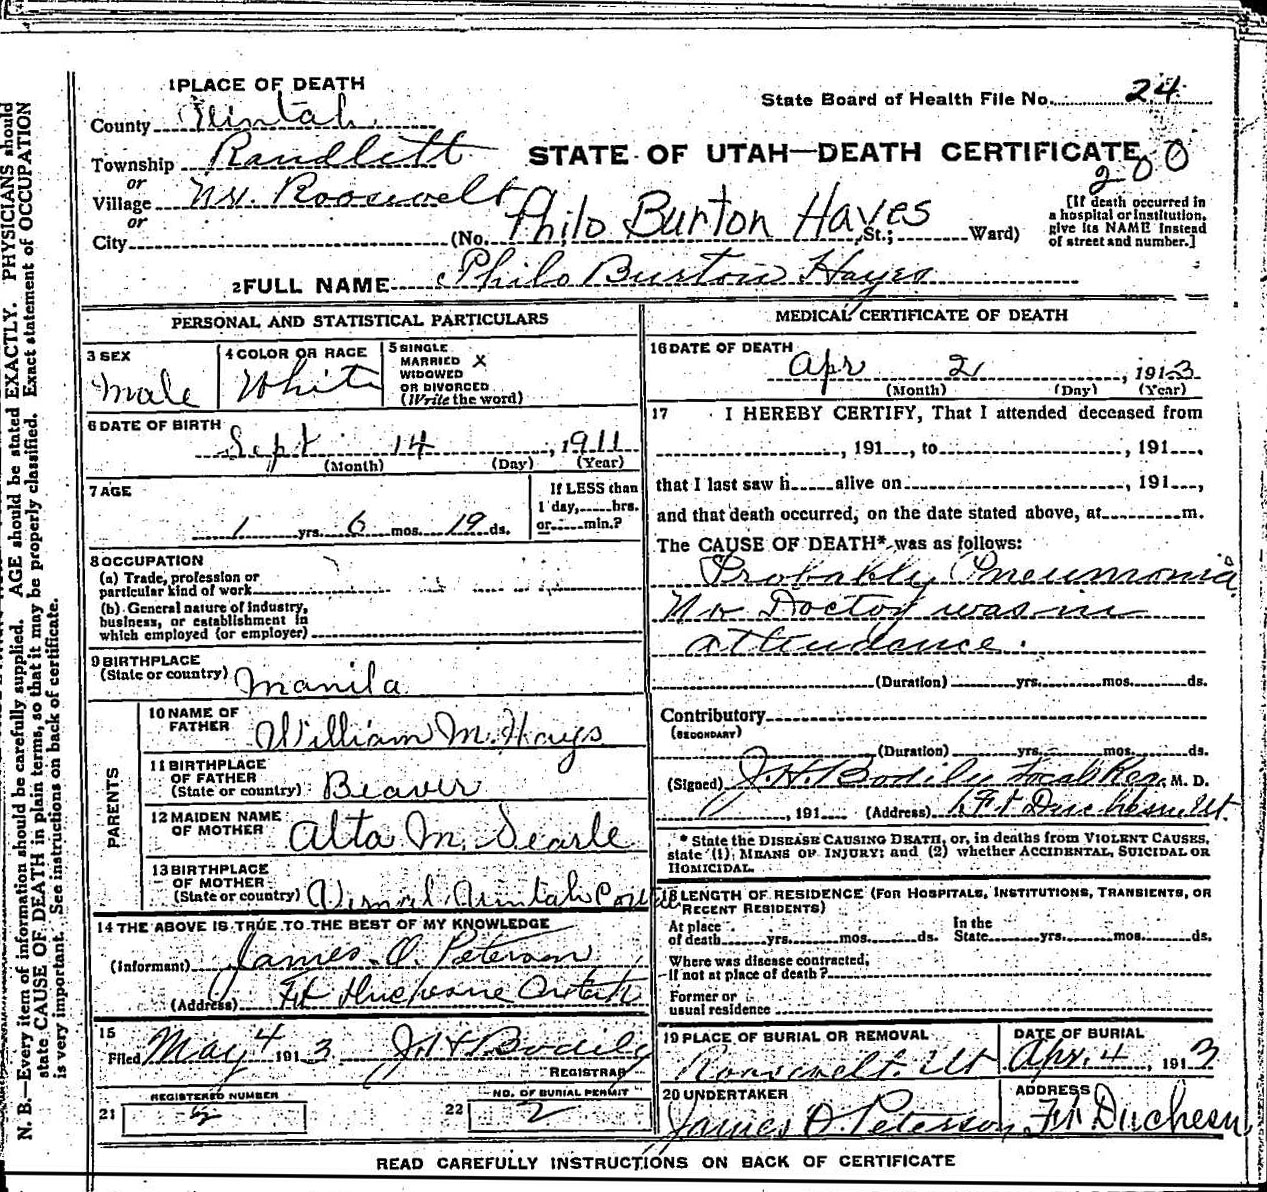 1 PLACE OF DEATH
State Board of Health File No. 24
County Uintah
Township Randlett
STATE OF UTAH—DEATH CERTIFICATE
200
or
Village Nr. Roosevelt
or
City
(No. Philo Burton Hayes St.; Ward)
[If death occurred in
a hospital or institution,
give its NAME instead
of street and number.]
2 FULL NAME Philo Burton Hayes
PERSONAL AND STATISTICAL PARTICULARS
3 SEX
Male
4 COLOR OR RACE
White
5 SINGLE
MARRIED X
WIDOWED
OR DIVORCED
(Write the word)
6 DATE OF BIRTH
Sept 14, 1911
(Month) (Day) (Year)
7 AGE
1 yrs. 6 mos. 19 ds.
If LESS than
1 day, hrs.
or min.?
8 OCCUPATION
(a) Trade, profession or
particular kind of work
(b) General nature of industry,
business, or establishment in
which employed (or employer)
9 BIRTHPLACE
(State or country) Manila
PARENTS
10 NAME OF
FATHER William M. Hays
11 BIRTHPLACE
OF FATHER
(State or country) Beaver
12 MAIDEN NAME
OF MOTHER Alta M. Searle
13 BIRTHPLACE
OF MOTHER
(State or country) Vernal Uintah Co
14 THE ABOVE IS TRUE TO THE BEST OF MY KNOWLEDGE
(Informant) James O. Peterson
(Address) Ft Duchesne Utah
15
Filed May 4 1913 J. H. Bodily
REGISTRAR
REGISTERED NUMBER
21
NO. OF BURIAL PERMIT
22 2
MEDICAL CERTIFICATE OF DEATH
16 DATE OF DEATH
Apr 2, 1913
(Month) (Day) (Year)
17 I HEREBY CERTIFY, That I attended deceased from
, 191 , to , 191 ,
that I last saw h alive on , 191 ,
and that death occurred, on the date stated above, at m.
The CAUSE OF DEATH* was as follows:
Probably Pneumonia
No Doctor was in
attendance.
(Duration) yrs. mos. ds.
Contributory
(SECONDARY)
(Duration) yrs. mos. ds.
(Signed) J. H. Bodily Local Reg, M. D.
, 191 (Address) Ft Duchesne Ut.
* State the DISEASE CAUSING DEATH, or, in deaths from VIOLENT CAUSES,
state (1) MEANS OF INJURY; and (2) whether ACCIDENTAL, SUICIDAL OR
HOMICIDAL.
18 LENGTH OF RESIDENCE (FOR HOSPITALS, INSTITUTIONS, TRANSIENTS, OR
RECENT RESIDENTS)
At place
of death yrs. mos. ds.
In the
State yrs. mos. ds.
Where was disease contracted,
if not at place of death?
Former or
usual residence
19 PLACE OF BURIAL OR REMOVAL
Roosevelt. Ut
DATE OF BURIAL
Apr. 4, 1913
20 UNDERTAKER
James O. Peterson
ADDRESS
Ft Duchesn
READ CAREFULLY INSTRUCTIONS ON BACK OF CERTIFICATE
N. B.—Every item of information should be carefully supplied. AGE should be stated EXACTLY. PHYSICIANS should
state CAUSE OF DEATH in plain terms, so that it may be properly classified. Exact statement of OCCUPATION
is very important. See instructions on back of certificate.